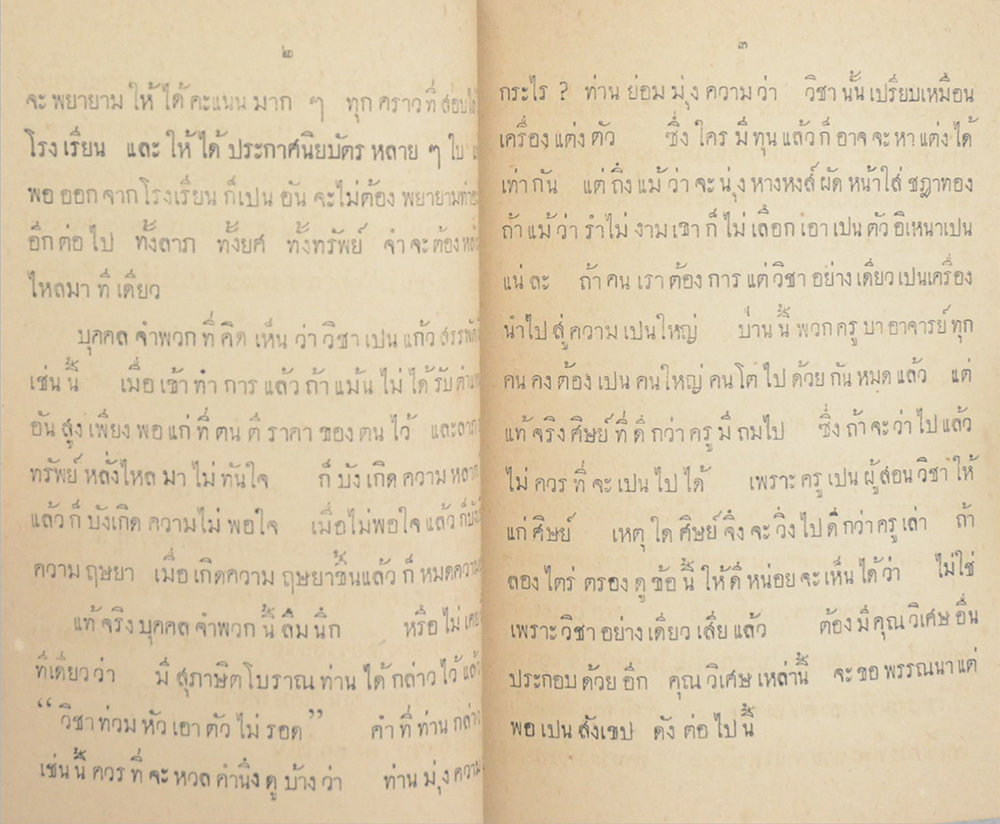 ๒
จะ พยายาม ให้ ได้ คะแนน มาก ๆ ทุก คราว ที่ สอบไล่
โรง เรียน และ ให้ ได้ ประกาศนียบัตร หลาย ๆ ใบ
พอ ออก จาก โรงเรียน ก็เปน อัน จะไม่ต้อง พยายาม
อีก ต่อ ไป ทั้งลาภ ทั้งยศ ทั้งทรัพย์ จำ จะ ต้อง
ไหลมา ที เดียว
บุคคล จำพวก ที่ คิด เห็น ว่า วิชา เปน แก้ว สารพัด
เช่น นี้ เมื่อ เข้า ทำ การ แล้ว ถ้า แม้น ไม่ ได้ รับ
อัน สูง เพียง พอ แก่ ที่ ตน ตี ราคา ของ ตน ไว้ และลาภ
ทรัพย์ หลั่งไหล มา ไม่ ทันใจ ก็ บัง เกิด ความ
แล้ว ก็ บังเกิด ความไม่ พอใจ เมื่อไม่พอใจ แล้ว ก็
ความ ฤษยา เมื่อ เกิดความ ฤษยาขึ้นแล้ว ก็ หมดความ
แท้ จริง บุคคล จำพวก นี้ ลืม นึก หรือ ไม่ เคย
ทีเดียว ว่า มี สุภาษิต โบราณ ท่าน ได้ กล่าว ไว้ แล้ว
“วิชา ท่วม หัว เอา ตัว ไม่ รอด” คำ ที่ ท่าน กล่าว
เช่น นี้ ควร ที่ จะ หวล คำนึง ดู บ้าง ว่า ท่าน มุ่ง ความ
๓
กระไร ? ท่าน ย่อม มุ่ง ความ ว่า วิชา นั้น เปรียบเหมือน
เครื่อง แต่ง ตัว ซึ่ง ใคร มี ทุน แล้ว ก็ อาจ จะ หา แต่ง ได้
เท่า กัน แต่ ถึง แม้ ว่า จะ นุ่ง หางหงส์ ผัด หน้าใส่ ชฎาทอง
ถ้า แม้ ว่า รำไม่ งาม เขา ก็ ไม่ เลือก เอา เปน ตัว อิเหนาเปน
แน่ ละ ถ้า คน เรา ต้อง การ แต่ วิชา อย่าง เดียว เปนเครื่อง
นำไป สู่ ความ เปนใหญ่ ป่าน นี้ พวก ครู บา อาจารย์ ทุก
คน คง ต้อง เปน คนใหญ่ คนโต ไป ด้วย กัน หมด แล้ว แต่
แท้ จริง ศิษย์ ที่ ดี กว่า ครู มี ถมไป ซึ่ง ถ้า จะ ว่า ไป แล้ว
ไม่ ควร ที่ จะ เปน ไป ได้ เพราะ ครู เปน ผู้ สอน วิชา ให้
แก่ ศิษย์ เหตุ ใด ศิษย์ จึ่ง จะ วิ่ง ไป ดี กว่า ครู เล่า ถ้า
ลอง ไตร่ ตรอง ดู ข้อ นี้ ให้ ดี หน่อย จะ เห็น ได้ ว่า ไม่ใช่
เพราะ วิชา อย่าง เดียว เสีย แล้ว ต้อง มี คุณ วิเศษ อื่น
ประกอบ ด้วย อีก คุณ วิเศษ เหล่านี้ จะ ขอ พรรณนา แต่
พอ เปน สังเขป ดัง ต่อ ไป นี้